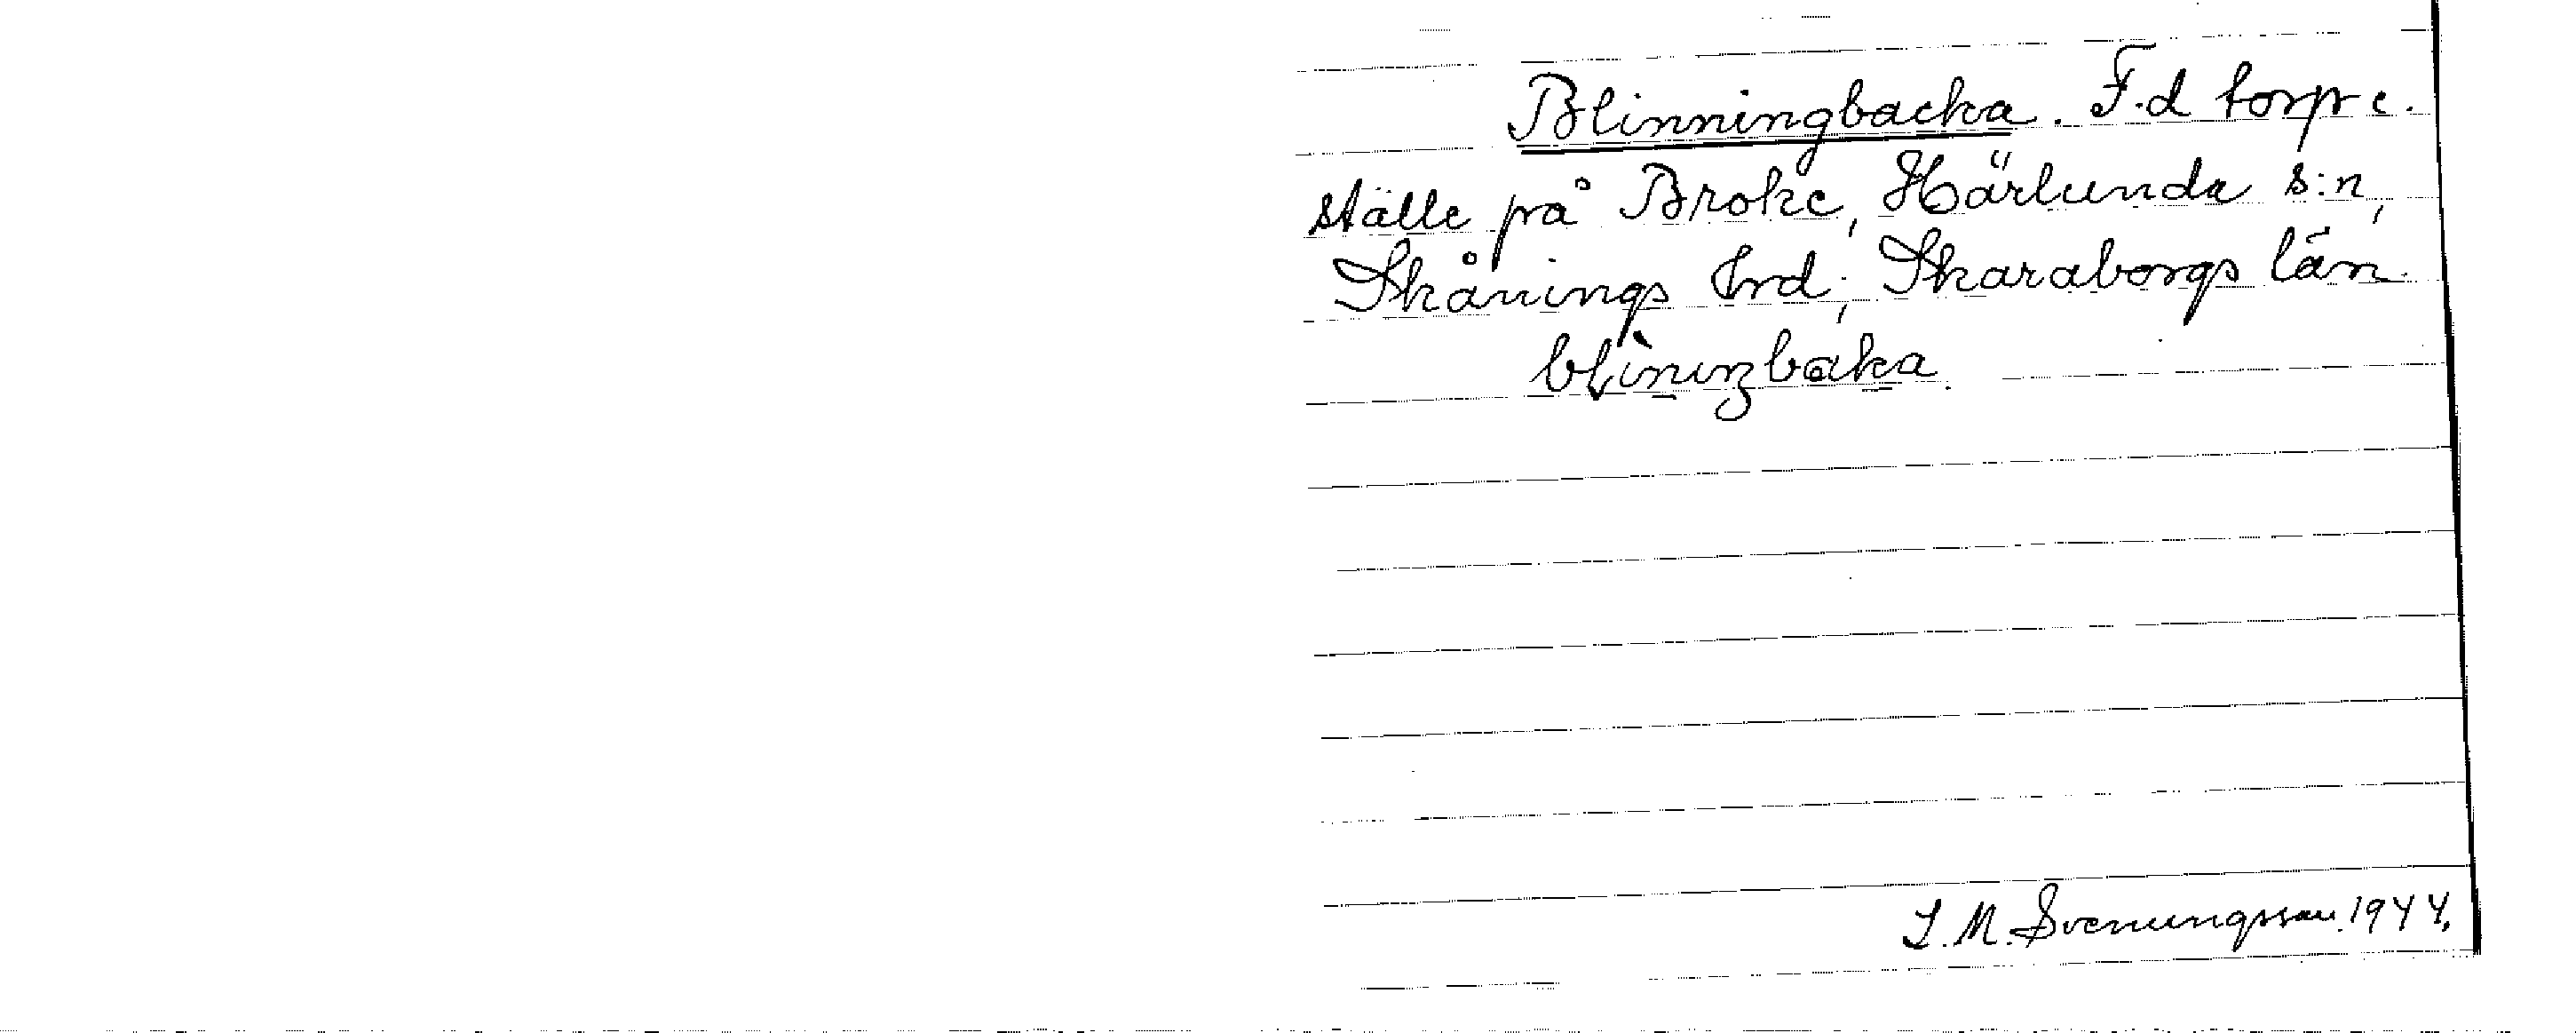 Blinningbacka. F.d torp e.
ställe på Broke, Härlunda s:n,
Skånings hrd; Skaraborgs län.
blìnıŋbaka.
S.M. Svenungsson. 1944.